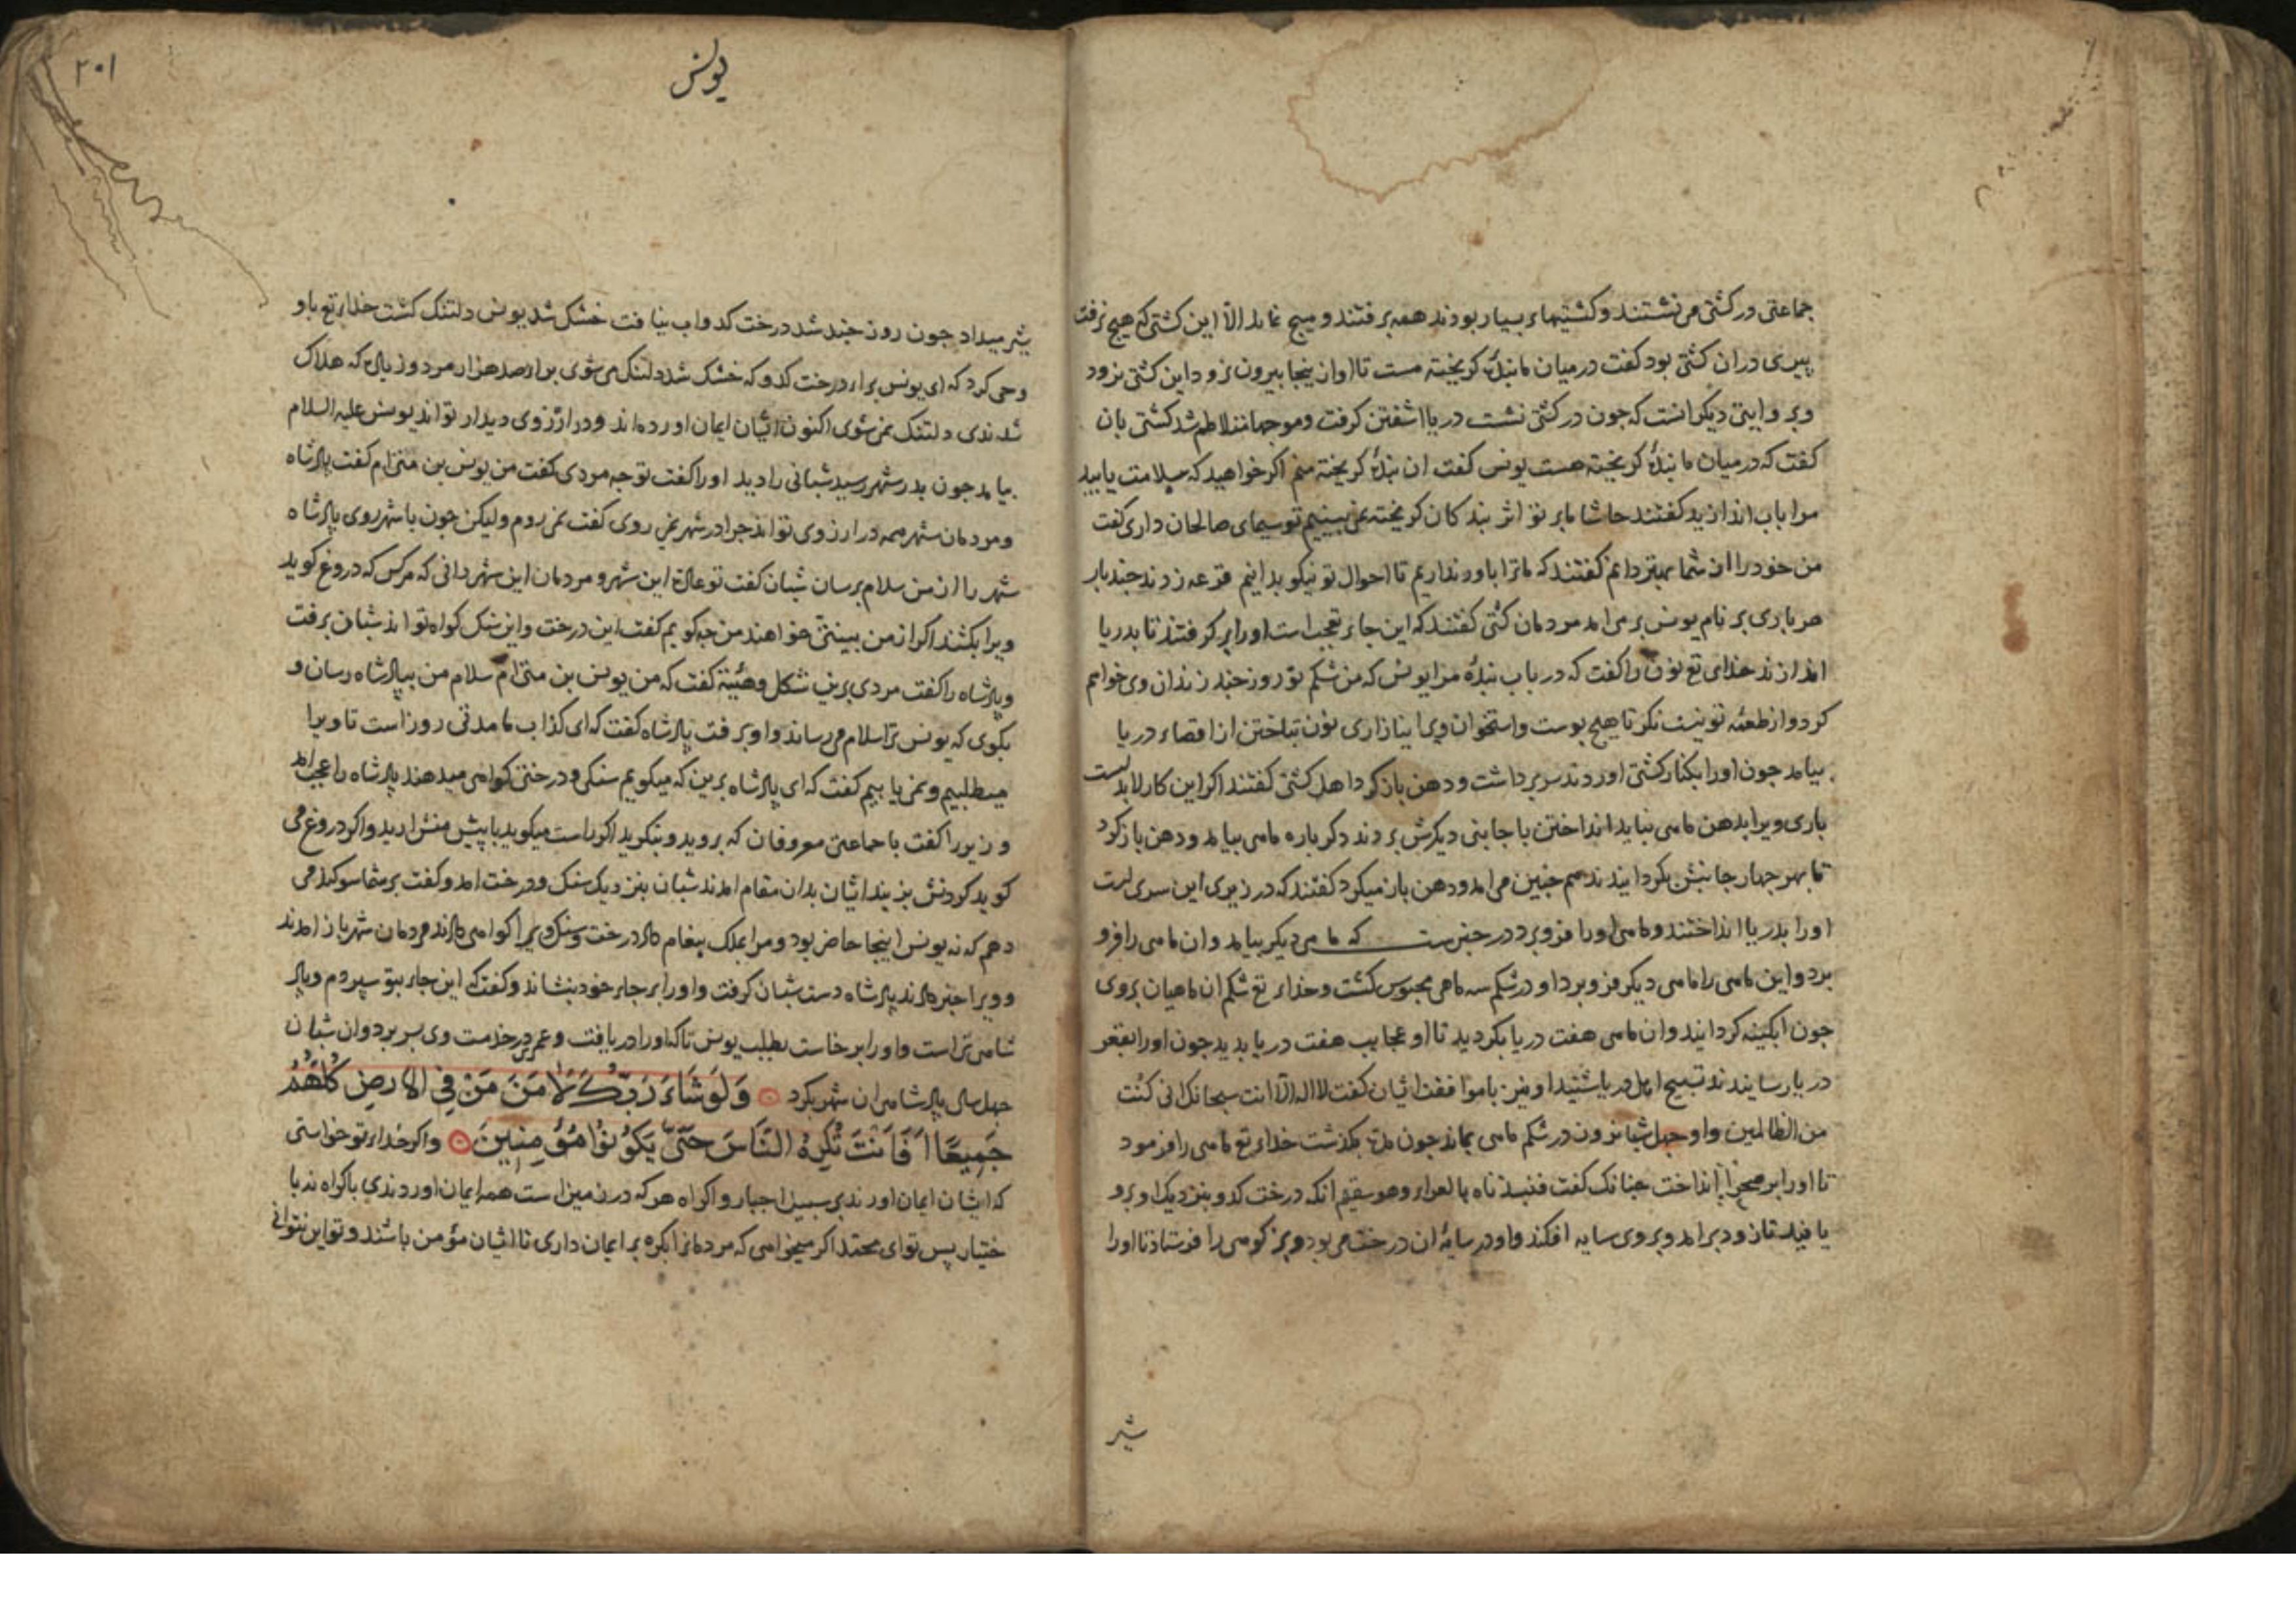 جماعتی در کشتی می نشستند و کشتیهاء بسیار بودند همه برفتند و هیچ نماند الا این کشتی که هیچ نرفت
پیری دران کشتی بود کفت در میان ما بندهٔ کریخته هست تا او از ینجا بیرون نرود این کشتی نرود
و بروایتی دیکر انست که جون در کشتی نشست دریا اشفتن کرفت و موجها متلاطم شد کشتی بان
کفت که در میان ما بندهٔ کریخته هست یونس کفت ان بندهٔ کریخته منم اکر خواهید که سلامت یابید
مرا باب اندازید کفتند حاشا ما بر تو اثر بندکان کریخته نمی بینیم تو سیمای صالحان داری کفت
من خود را از شما بهتر دانم کفتند که ما ترا باور نداریم تا احوال تو نیکو بدانیم قرعه زدند جند بار
هر باری بر نام یونس بر می امد مردمان کشتی کفتند که این جاء تعجب است اورا بر کرفتند تا بدریا
اندازند خدای تع نون را کفت که در یاب بندهٔ مرا یونس که من شکم تو روز جند زندان وی خواهم
کرد و از طعمهٔ تو نیست نکر تا هیچ پوست و استخوان ویرا نیازاری نون بتاختن از اقصاء دریا
بیامد جون اورا بکنار کشتی اوردند سر برداشت و دهن باز کرد اهل کشتی کفتند اکر این کار لابد است
باری ویرا بدهن ماهی نباید انداختن با جانبی دیکرش بردند دکر باره ماهی بیامد و دهن باز کرد
تا بهر جهار جانبش بکردانیدند هم جنین می امد و دهن باز میکرد کفتند که در زیر این سری است
اورا بدریا انداختند و ماهی اورا فرو برد در خبرست که ماهی دیکر بیامد و ان ماهی را فرو
برد و این ماهی را ماهی دیکر فرو برد او در شکم سه ماهی محبوس کشت و خداء تع شکم ان ماهیان بروی
جون ابکینه کردانید و ان ماهی هفت دریا بکردید تا او عجایب هفت دریا بدید جون اورا بقعر
دریا رسانیدند تسبیح اهل دریا شنید او نیز با موافقت ایشان کفت لا اله الا انت سبحانک انی کنت
من الظالمین و او جهل شبانروز در شکم ماهی بماند جون مدت بکذشت خداء تع ماهی را فرمود
تا اورا بر صحرا انداخت جنانک کفت فنبذناه بالعراء وهو سقیم انکه درخت کدو بنزدیک او برو
یانید تا زود برامد و بروی سایه افکند و او در سایهٔ ان درخت می بود و بز کوهی را فرستاد تا اورا
شیر
۲۰۱
یونس
شیر میداد جون روز جند شد درخت کدو اب نیافت خشک شد یونس دلتنک کشت خداء تع باو
وحی کرد که ای یونس براء درخت کدو که خشک شد دلتنک می شوی براء صد هزار مرد و زیادت که هلاک
شدندی دلتنک نمی شوی اکنون ایشان ایمان اورده اند و در ارزوی دیدار تو اند یونس علیه السلام
بیامد جون بدر شهر رسید شبانی را دید اورا کفت تو جه مردی کفت من یونس بن متی ام کفت پادشاه
و مردمان شهر همه در ارزوی تو اند جرا در شهر نمی روی کفت نمی روم ولیکن جون با شهر روی پادشاه
شهر را از من سلام برسان شبان کفت تو عادت این شهر و مردمان این شهر دانی که هر کس که دروغ کوید
ویرا بکشند اکر از من بینتی خواهند من جه کویم کفت این درخت و این سنک کواه تو اند شبان برفت
و پادشاه را کفت مردی برین شکل و هیئة کفت که من یونس بن متی ام سلام من بپادشاه رسان و
بکوی که یونس ترا سلام می رساند و او برفت پادشاه کفت که ای کذاب ما مدتی روز است تا ویرا
میطلبیم و نمی یابیم کفت که ای پادشاه برین که میکویم سنکی و درختی کواهی میدهند پادشاه را عجب امد
وزیر را کفت با جماعتی معروفان که بروید و بنکرید اکر راست میکوید با پیش منش ارید و اکر دروغ می
کوید کردنش بزنید ایشان بدان مقام امدند شبان بنزدیک سنک و درخت امد و کفت بر شما سوکند می
دهم که نه یونس اینجا حاضر بود و مرا بملک پیغام داد درخت و سنک ویرا کواهی دادند مردمان شهر باز امدند
و ویرا خبر دادند پادشاه دست شبان کرفت و اورا بر جاء خود بنشاند و کفت که این جاء بتو سپردم و پاد
شاهی تراست و اورا برخاست بطلب یونس تا که اورا دریافت و عمر در خدمت وی بسر برد و ان شبان
جهل سال پادشاهی ان شهر بکرد وَلَوْ شَاءَ رَبُّكَ لَآمَنَ مَنْ فِي الْأَرْضِ كُلُّهُمْ
جَمِيعًا أَفَأَنْتَ تُكْرِهُ النَّاسَ حَتَّى يَكُونُوا مُؤْمِنِينَ و اکر خداء تو خواستی
که ایشان ایمان اورندی بر سبیل اجبار و اکراه هر که در زمین است همه ایمان اوردندی باکراه نه با
ختیار پس تو ای محمد اکر میخواهی که مردمانرا بکره بر ایمان داری تا ایشان مؤمن باشند و تو این نتوانی